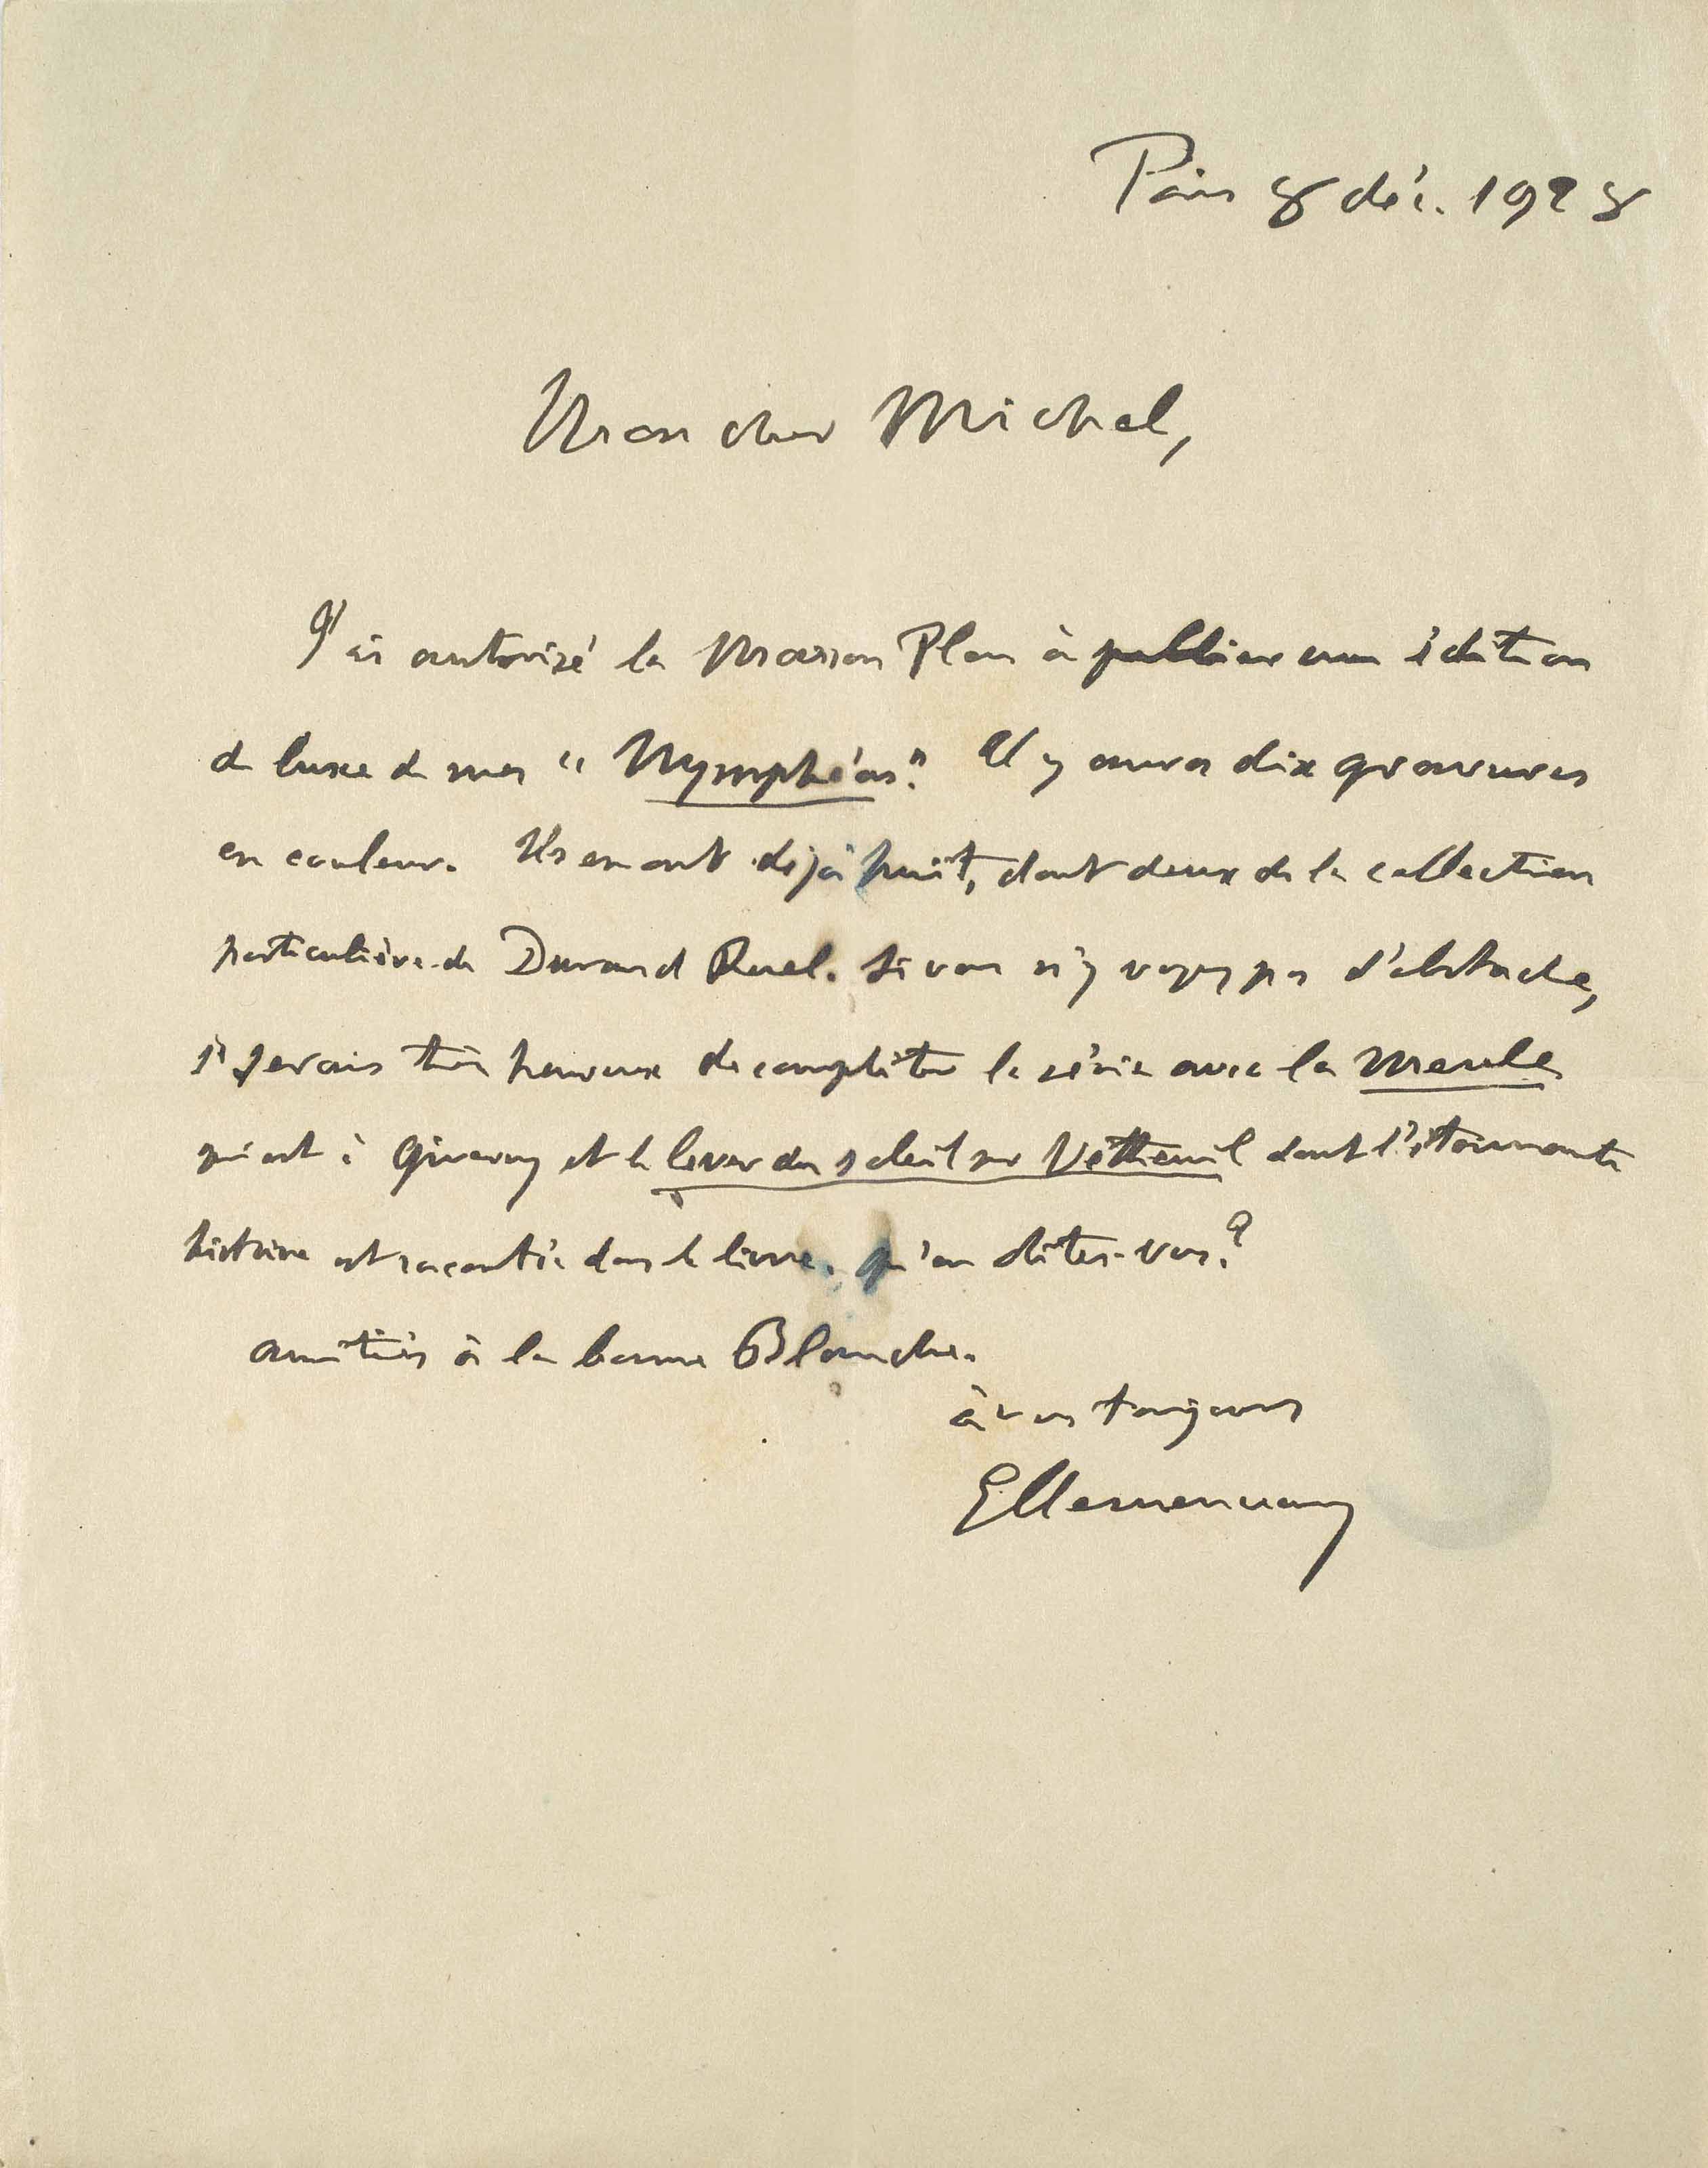 Paris 8 déc. 1928
Mon cher Michel,
J'ai autorisé la Maison Plon à publier une édition
de luxe de mes "Nymphéas". Il y aura dix gravures
en couleur. Ils en ont déjà huit, dont deux de la collection
particulière de Durand Ruel. Si vous n'y voyez pas d'obstacle,
je serais très heureux de compléter la série avec la Meule
qui est à Giverny et le lever du soleil sur Vétheuil dont l'étonnante
histoire est racontée dans le livre. Qu'en dites-vous?
amitiés à la bonne Blanche.
à vous toujours
GClemenceau